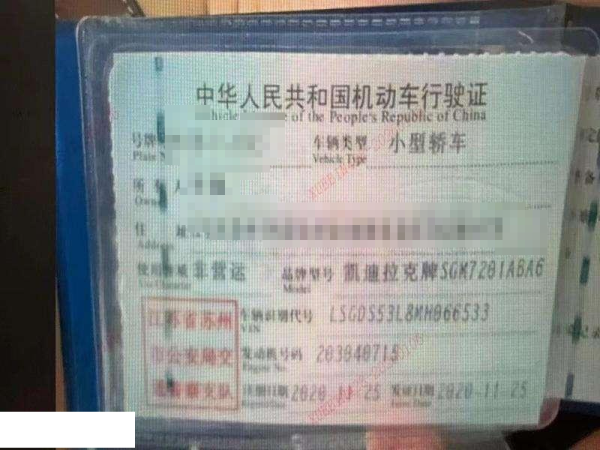 中华人民共和国机动车行驶证
Vehicle License of the People's Republic of China
号牌 车辆类型 小型轿车
Plate No. Vehicle Type
所有人
Owner
住 址
Address
使用性质 非营运 品牌型号 凯迪拉克牌SGM7201ABA6
Use Character Model
江苏省苏州 车辆识别代号 LSGDS53L8MH066533
VIN
市公安局交 发动机号码 203040715
Engine No.
通警察支队 注册日期 2020-11-25 发证日期 2020-11-25
Register Date Issue Date